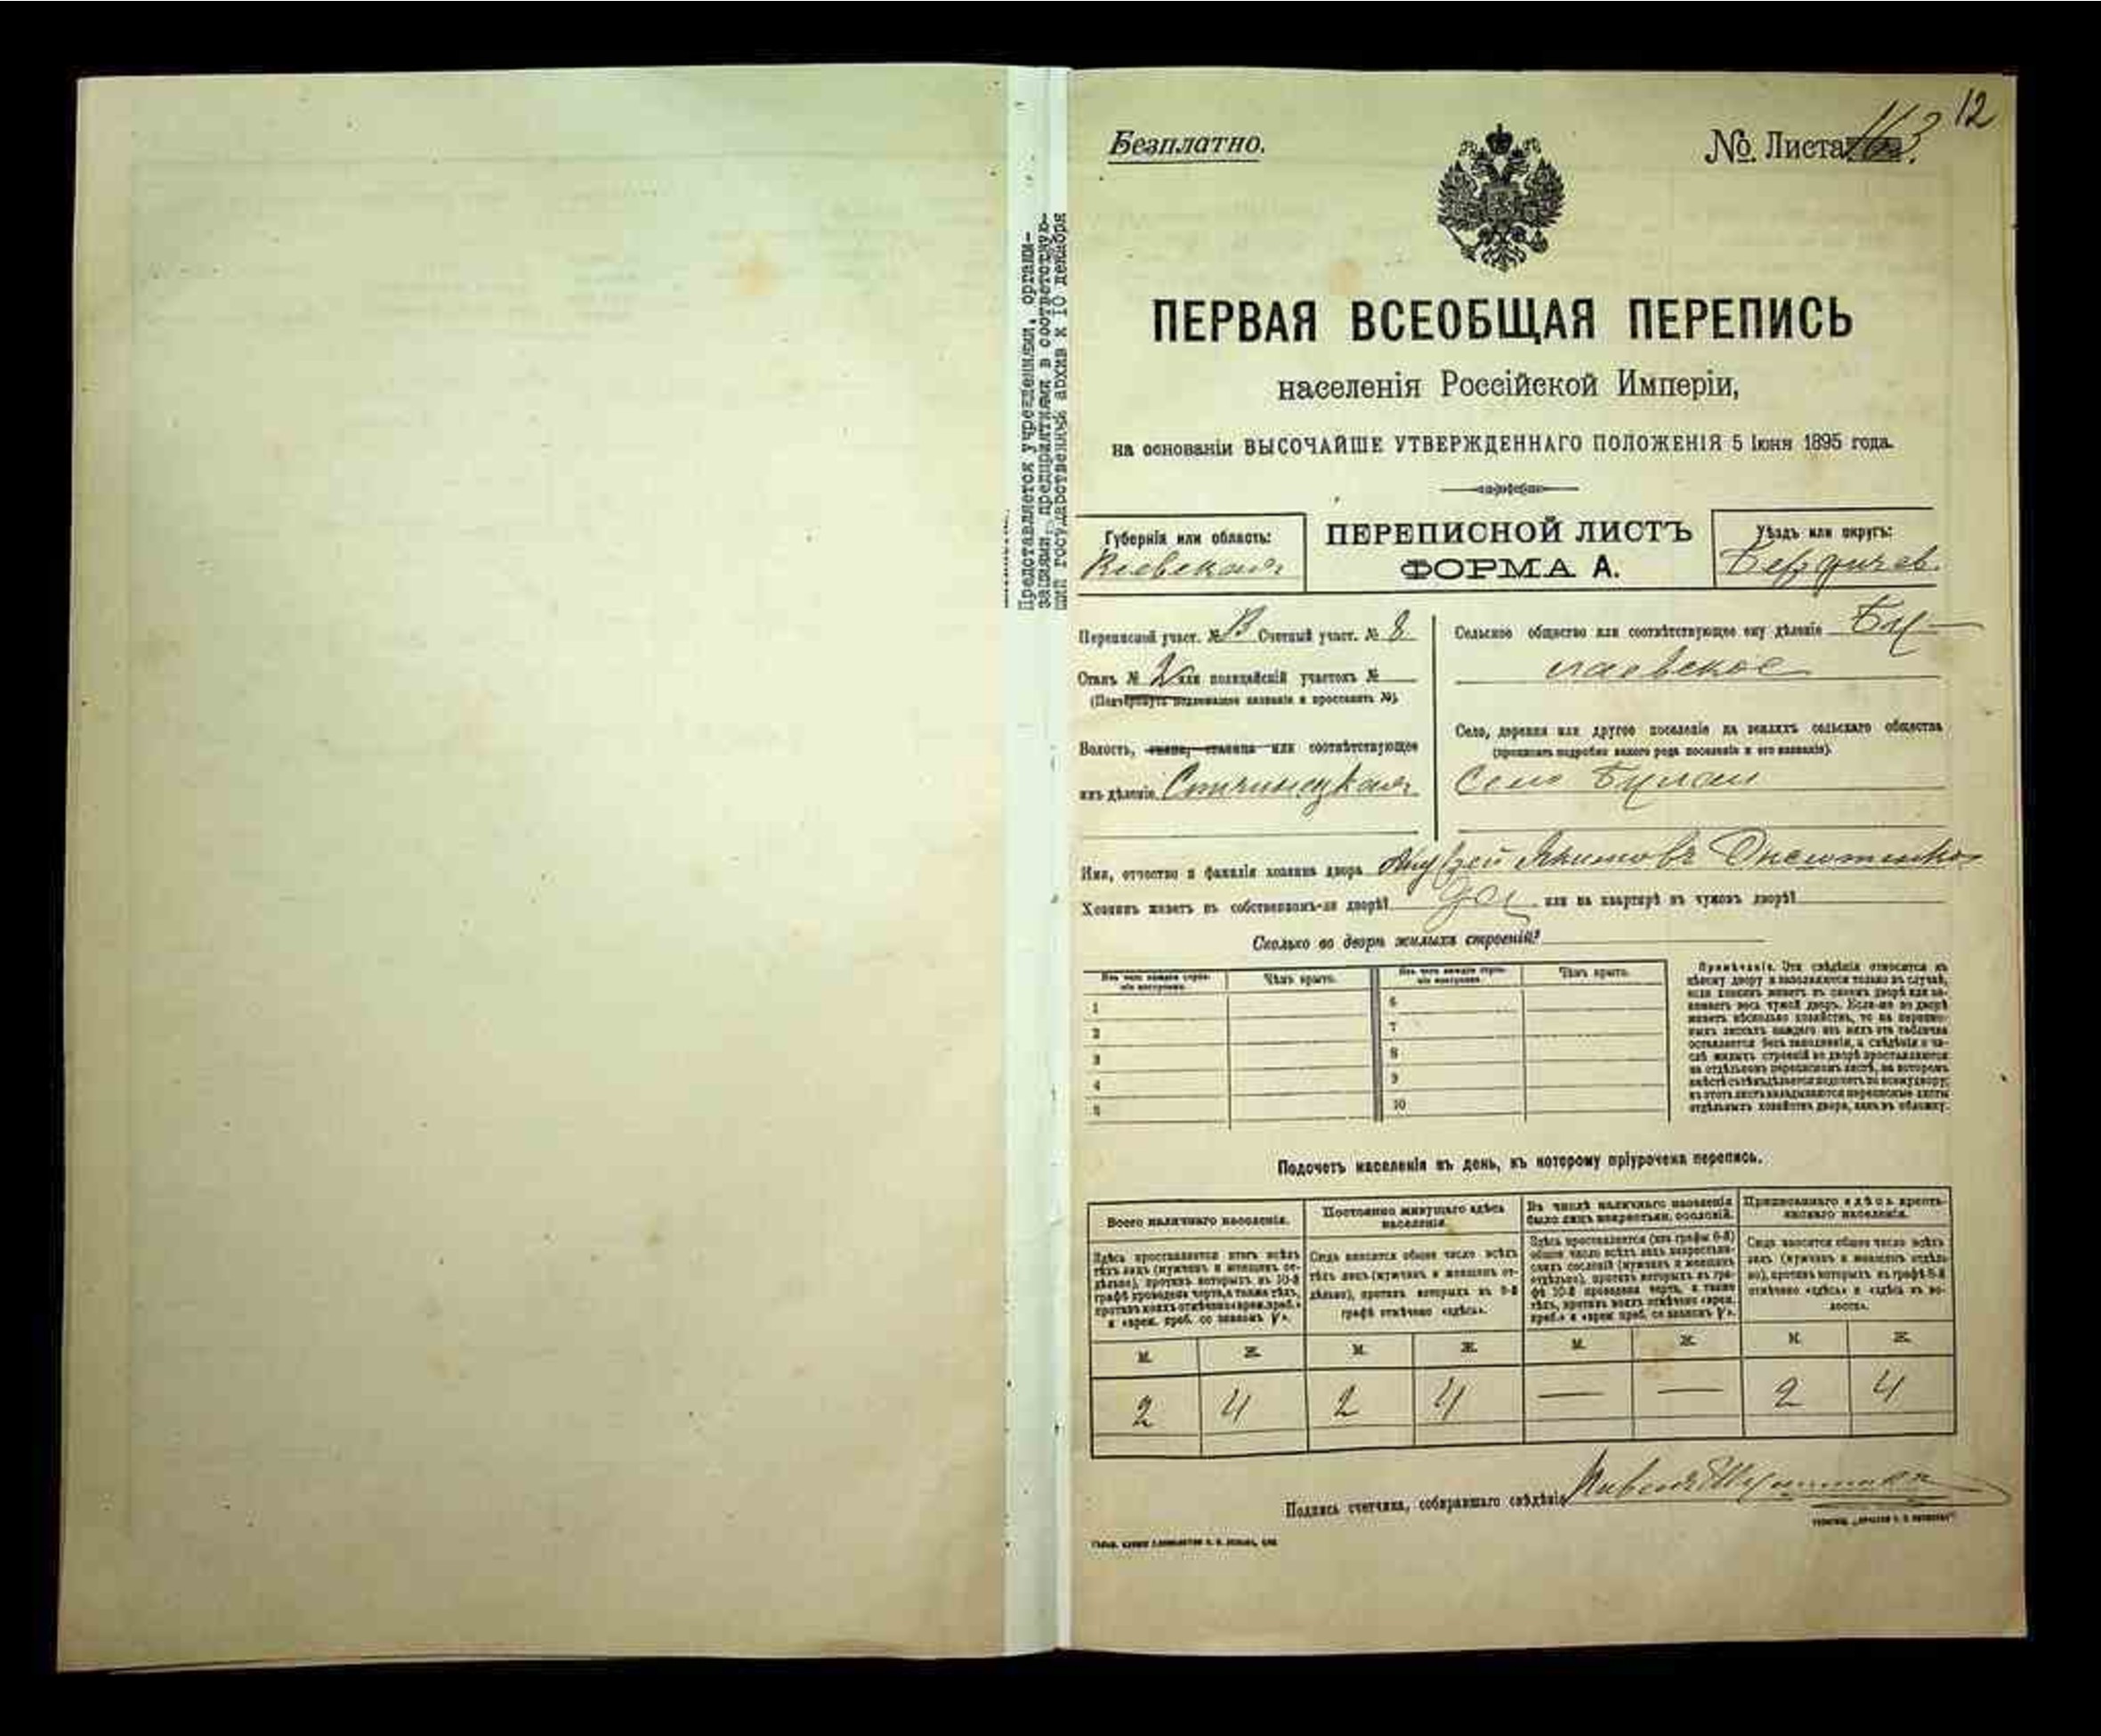 12
Безплатно.
№ Листа 163.
ПЕРВАЯ ВСЕОБЩАЯ ПЕРЕПИСЬ
населенія Россійской Имперіи,
на основаніи ВЫСОЧАЙШЕ УТВЕРЖДЕННАГО ПОЛОЖЕНІЯ 5 Іюня 1895 года.
Губернія или область:
Кіевская
ПЕРЕПИСНОЙ ЛИСТЪ
ФОРМА А.
Уѣздъ или округъ:
Бердичев.
Переписной участ. № Счетный участ. № 8
Станъ № 2 или полицейскій участокъ №
(Подчеркнуть подлежащее названіе и проставить №).
Волость, гмина, станица или соотвѣтствующее
имъ дѣленіе
Сельское общество или соотвѣтствующее ему дѣленіе
Село, деревня или другое поселеніе на земляхъ сельскаго общества
(прописать подробно какого рода поселеніе и его названіе).
Село
Имя, отчество и фамилія хозяина двора Андрей Якимовъ
Хозяинъ живетъ въ собственномъ-ли дворѣ? да или на квартирѣ въ чужомъ дворѣ?
Сколько во дворѣ жилыхъ строеній?
Изъ чего каждое строеніе построено.
Чѣмъ крыто.
Изъ чего каждое строеніе построено.
Чѣмъ крыто.
1 6
2 7
3 8
4 9
5 10
Примѣчаніе. Эти свѣдѣнія относятся къ
цѣлому двору и заполняются только въ случаѣ,
если хозяинъ живетъ въ своемъ дворѣ или за-
нимаетъ весь чужой дворъ. Если-же во дворѣ
живетъ нѣсколько хозяйствъ, то на перепис-
ныхъ листахъ каждаго изъ нихъ эта табличка
оставляется безъ заполненія, а свѣдѣнія о чи-
слѣ жилыхъ строеній во дворѣ проставляются
на отдѣльномъ переписномъ листѣ, на которомъ
вмѣстѣ съ тѣмъ дѣлается подсчетъ по всему двору;
въ этотъ листъ вкладываются переписные листы
отдѣльныхъ хозяйствъ двора, какъ въ обложку.
Подсчетъ населенія въ день, къ которому пріурочена перепись.
Всего наличнаго населенія.
Здѣсь проставляется итогъ всѣхъ
тѣхъ лицъ (мужчинъ и женщинъ от-
дѣльно), противъ которыхъ въ 10-й
графѣ проведена черта, а также тѣхъ,
противъ коихъ отмѣчено «врем. преб.»
и «врем. преб. со знакомъ V».
Постоянно живущаго здѣсь
населенія.
Сюда вносится общее число всѣхъ
тѣхъ лицъ (мужчинъ и женщинъ от-
дѣльно), противъ которыхъ въ 9-й
графѣ отмѣчено «здѣсь».
Въ числѣ наличнаго населенія
было лицъ некрестьян. сословій.
Здѣсь проставляется (изъ графы 6-й)
общее число всѣхъ лицъ некрестьян-
скихъ сословій (мужчинъ и женщинъ
отдѣльно), противъ которыхъ въ гра-
фѣ 10-й проведена черта, а также
тѣхъ, противъ коихъ отмѣчено «врем.
преб.» и «врем. преб. со знакомъ V».
Приписаннаго здѣсь кресть-
янскаго населенія.
Сюда вносится общее число всѣхъ
лицъ (мужчинъ и женщинъ отдѣль-
но), противъ которыхъ въ графѣ 8-й
отмѣчено «здѣсь» и «здѣсь въ во-
лости».
М. Ж. М. Ж. М. Ж. М. Ж.
2 4 2 4 — — 2 4
Подпись счетчика, собиравшаго свѣдѣнія
Предоставляется учреждениями, органи-
зациями, предприятиями в соответствую-
щий государственный архив к 10 декабря